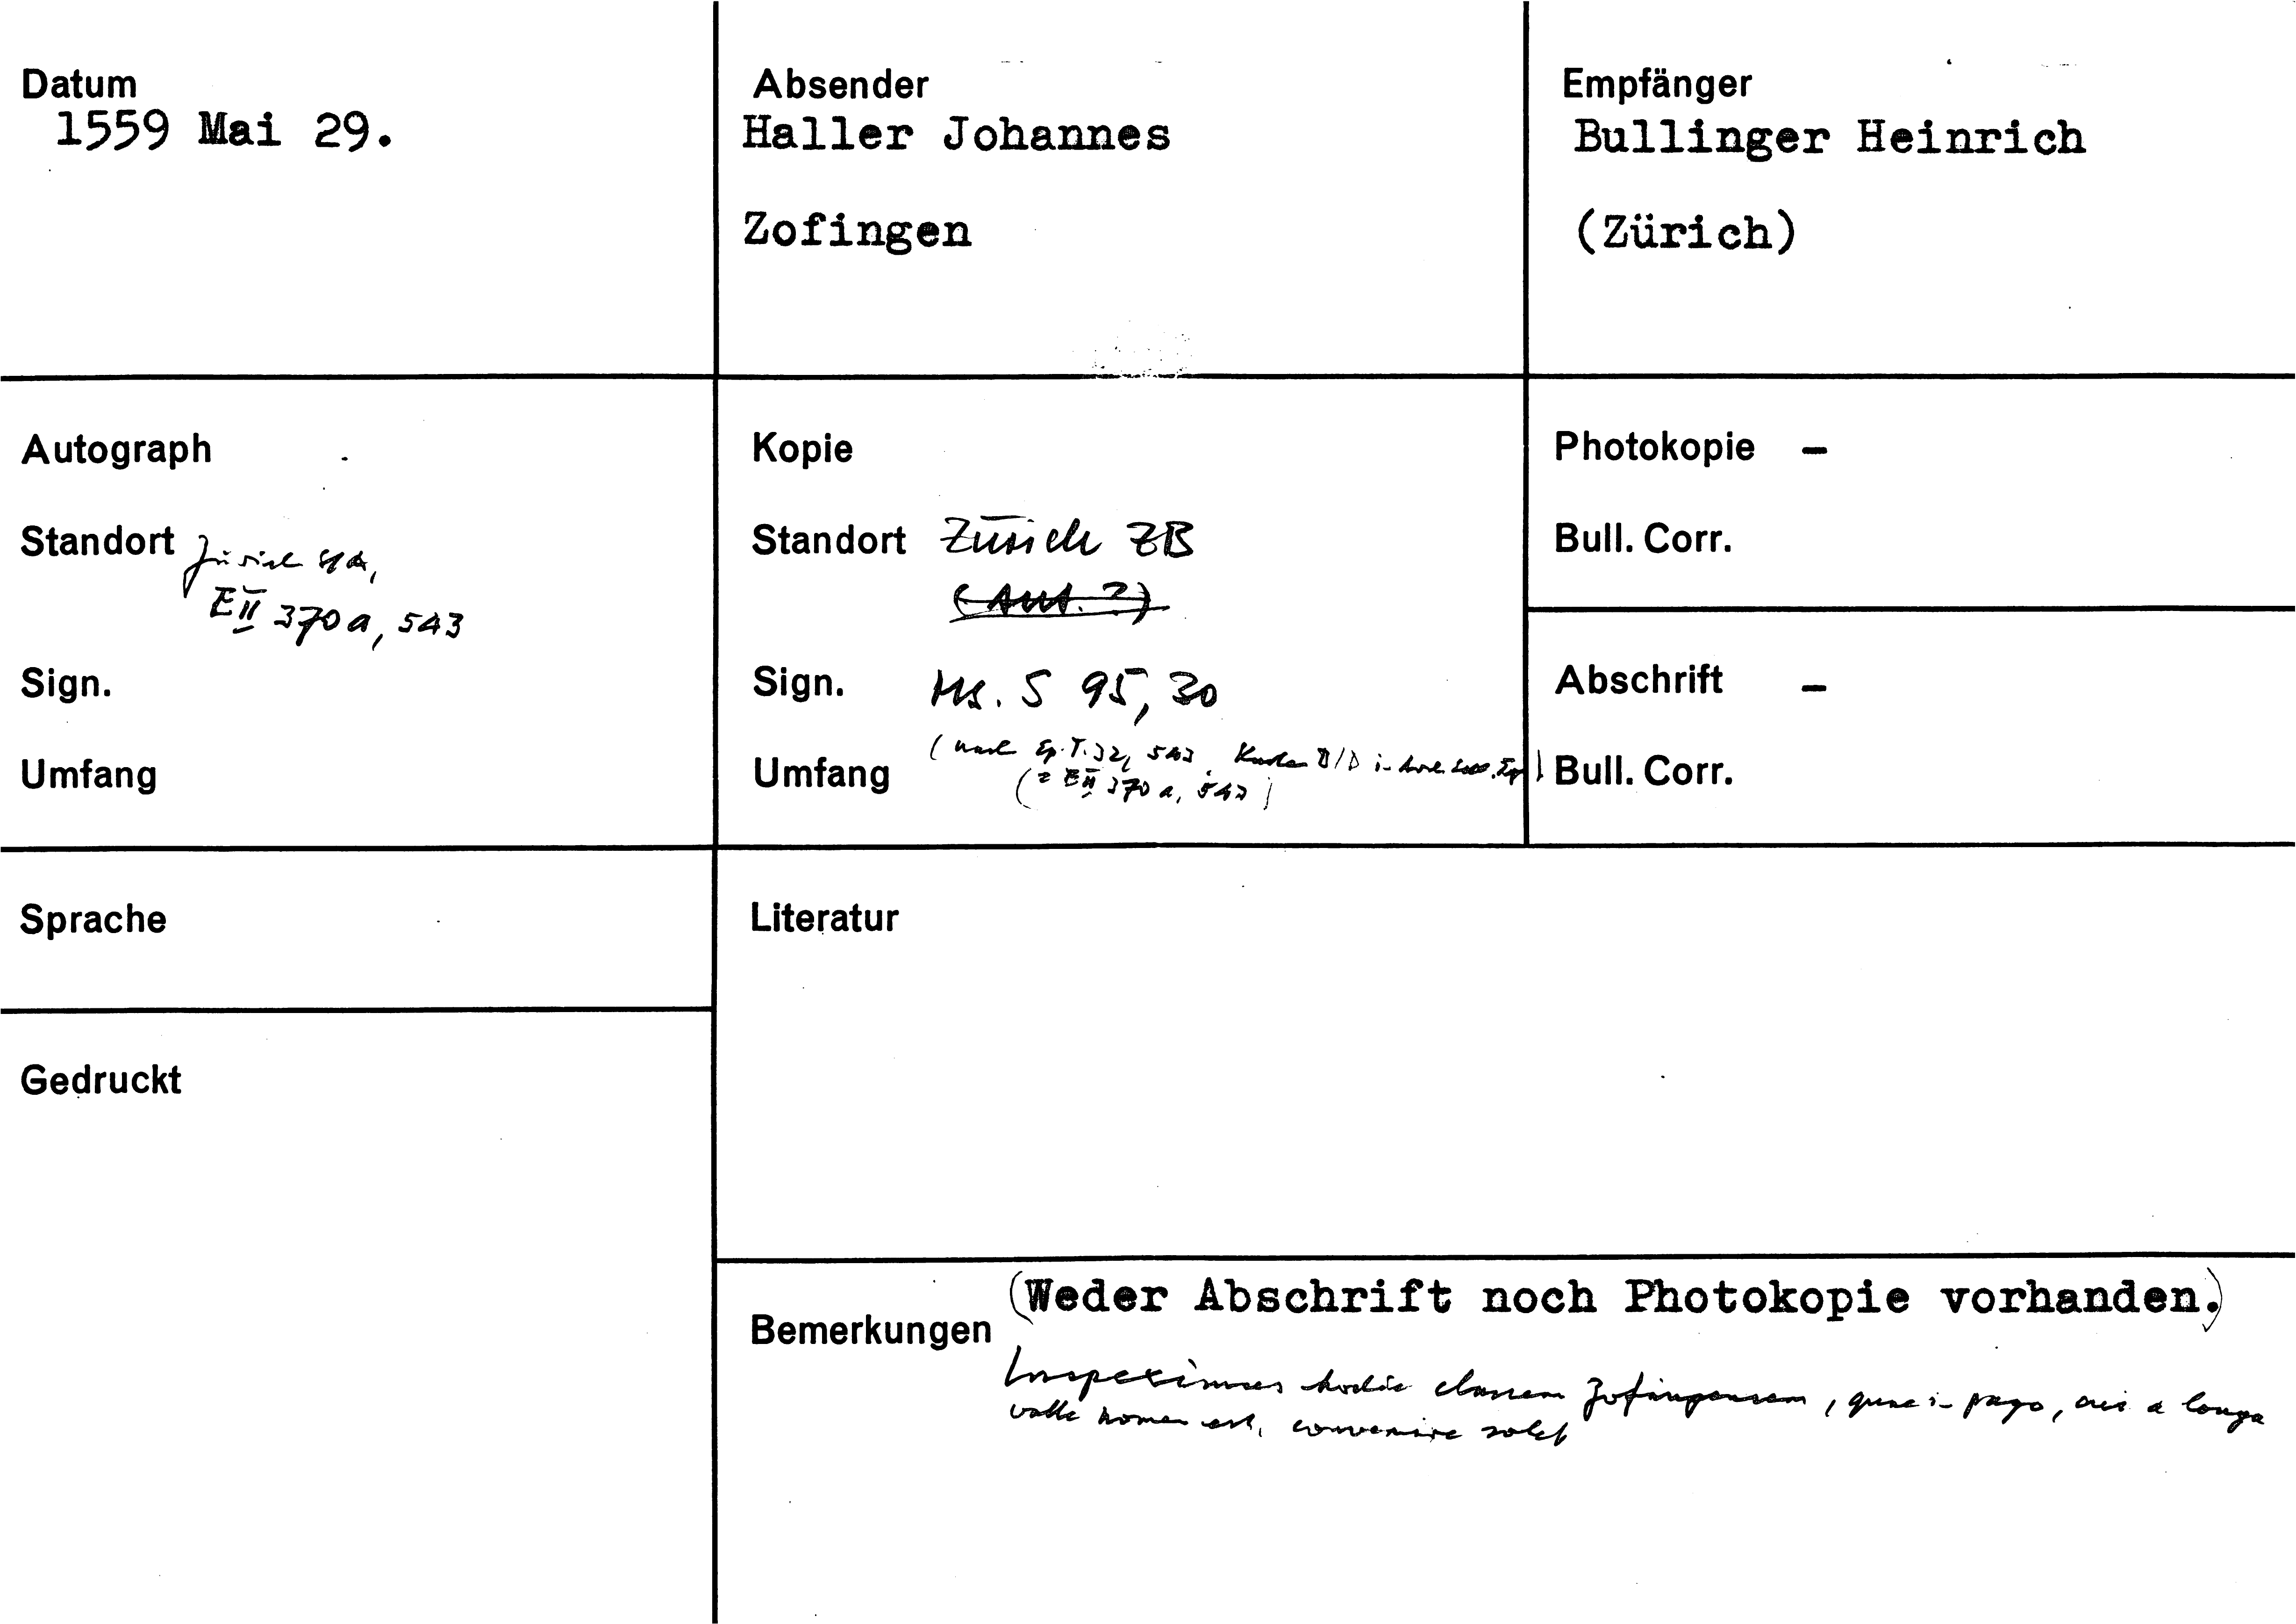 Datum
1559 Mai 29.
Absender
Haller Johannes
Zofingen
Empfänger
Bullinger Heinrich
(Zürich)
Autograph
Standort Zürich StA,
E II 370a, 543
Sign.
Umfang
Kopie
Standort Zürich ZB
(Aut. ?)
Sign. Ms. S 95, 30
Umfang (nach Ep. T. 32, 543.
(= E II 370 a, 543)
Photokopie –
Bull. Corr.
Abschrift –
Bull. Corr.
Sprache
Literatur
Gedruckt
Bemerkungen
(Weder Abschrift noch Photokopie vorhanden.)
Inspeximus hodie classem Zofingensem, quae in pago, cui a longa
valle nomen est, convenire solet